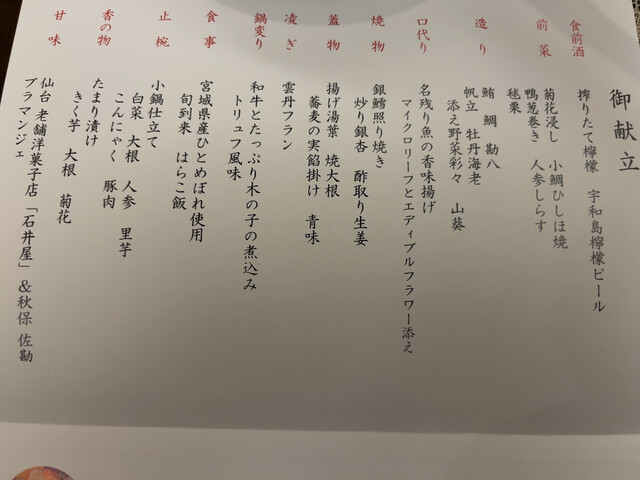 御献立
食前酒
搾りたて檸檬 宇和島檸檬ビール
前菜
菊花浸し 小鯛ひしほ焼
鴨葱巻き 人参しらす
毬栗
造り
鮪 鯛 勘八
帆立 牡丹海老
添え野菜彩々 山葵
口代り
名残り魚の香味揚げ
マイクロリーフとエディブルフラワー添え
焼物
銀鱈照り焼き
炒り銀杏 酢取り生姜
蓋物
揚げ湯葉 焼大根
蕎麦の実餡掛け 青味
凌ぎ
雲丹フラン
鍋変り
和牛とたっぷり木の子の煮込み
トリュフ風味
食事
宮城県産ひとめぼれ使用
旬到来 はらこ飯
止椀
小鍋仕立て
白菜 大根 人参 里芋
こんにゃく 豚肉
香の物
たまり漬け
きく芋 大根 菊花
甘味
仙台 老舗洋菓子店「石井屋」&秋保 佐勘
ブラマンジェ